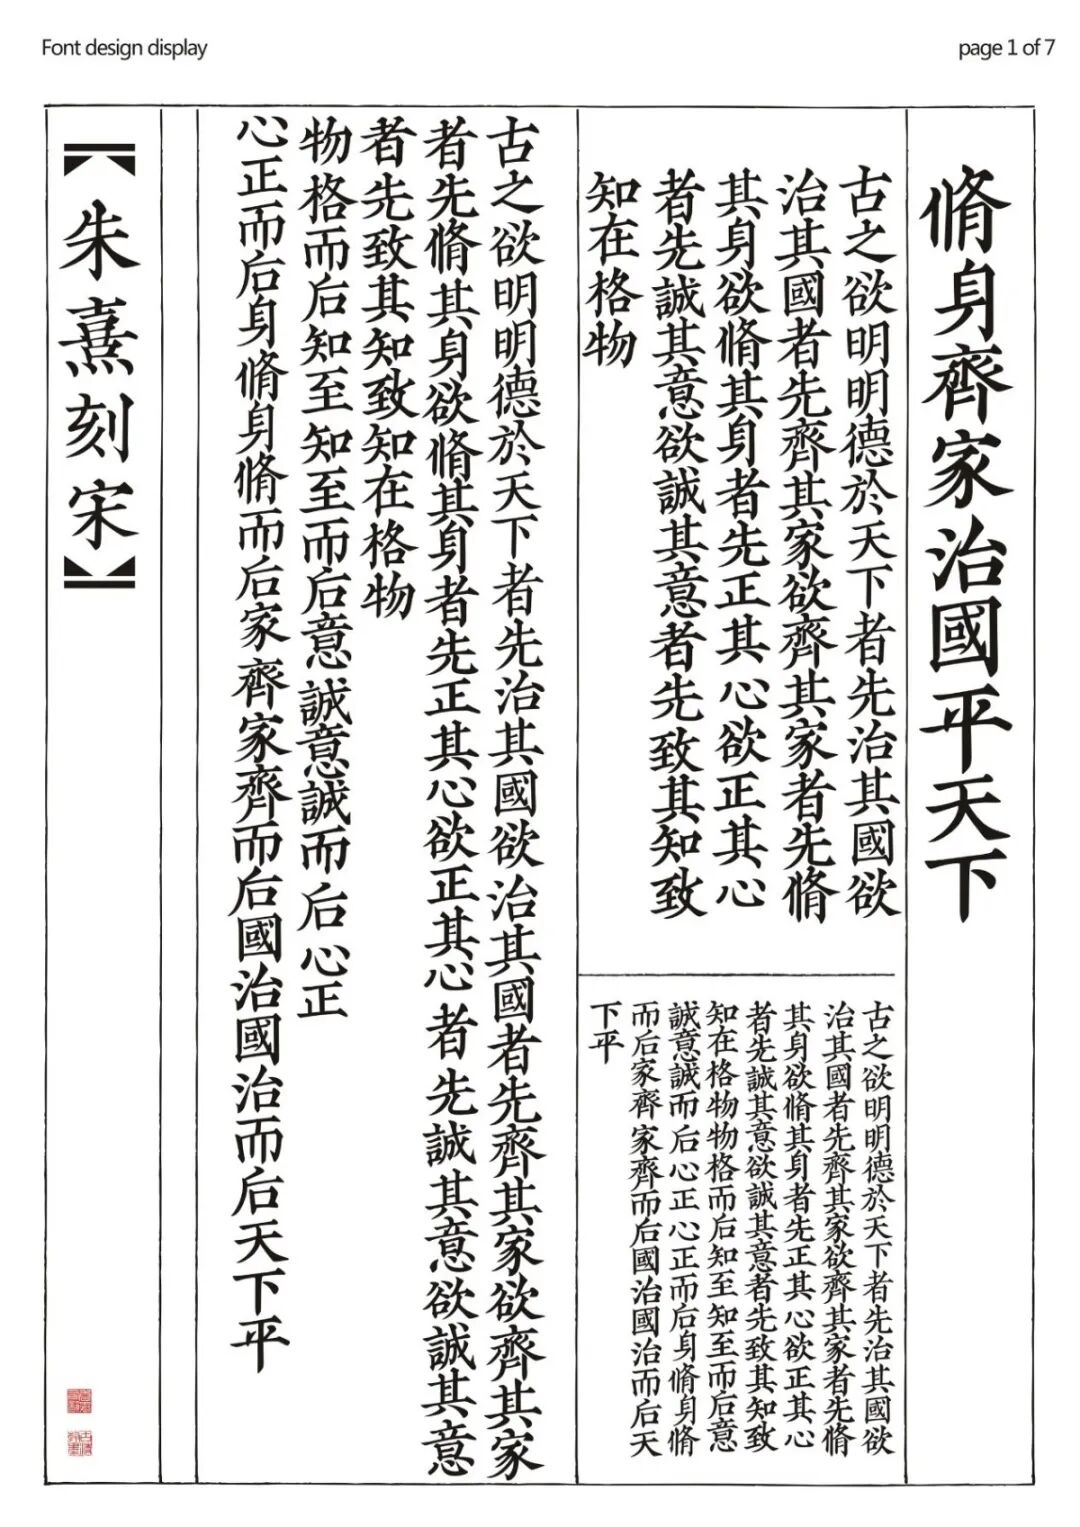 Font design display
page 1 of 7
脩身齊家治國平天下
古之欲明明德於天下者先治其國欲
治其國者先齊其家欲齊其家者先脩
其身欲脩其身者先正其心欲正其心
者先誠其意欲誠其意者先致其知致
知在格物
古之欲明明德於天下者先治其國欲
治其國者先齊其家欲齊其家者先脩
其身欲脩其身者先正其心欲正其心
者先誠其意欲誠其意者先致其知致
知在格物物格而后知至知至而后意
誠意誠而后心正心正而后身脩身脩
而后家齊家齊而后國治國治而后天
下平
古之欲明明德於天下者先治其國欲治其國者先齊其家欲齊其家
者先脩其身欲脩其身者先正其心欲正其心者先誠其意欲誠其意
者先致其知致知在格物
物格而后知至知至而后意誠意誠而后心正
心正而后身脩身脩而后家齊家齊而后國治國治而后天下平
【朱熹刻宋】